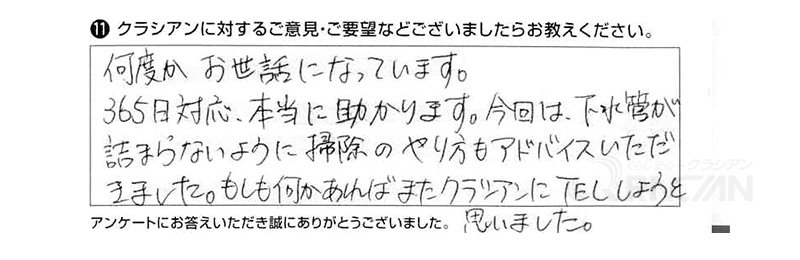 ⓫ クラシアンに対するご意見・ご要望などございましたらお教えください。
何度か お世話になっています。
365日対応、本当に助かります。今回は、下水管が
詰まらないように掃除のやり方もアドバイスいただ
きました。もしも何かあればまたクラシアンにTELしようと
思いました。
アンケートにお答えいただき誠にありがとうございました。
クラシアン